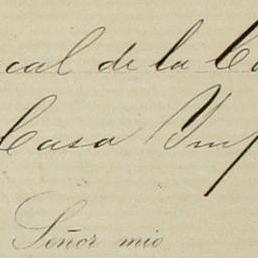 cal de la C
Casa Imp
Señor mio